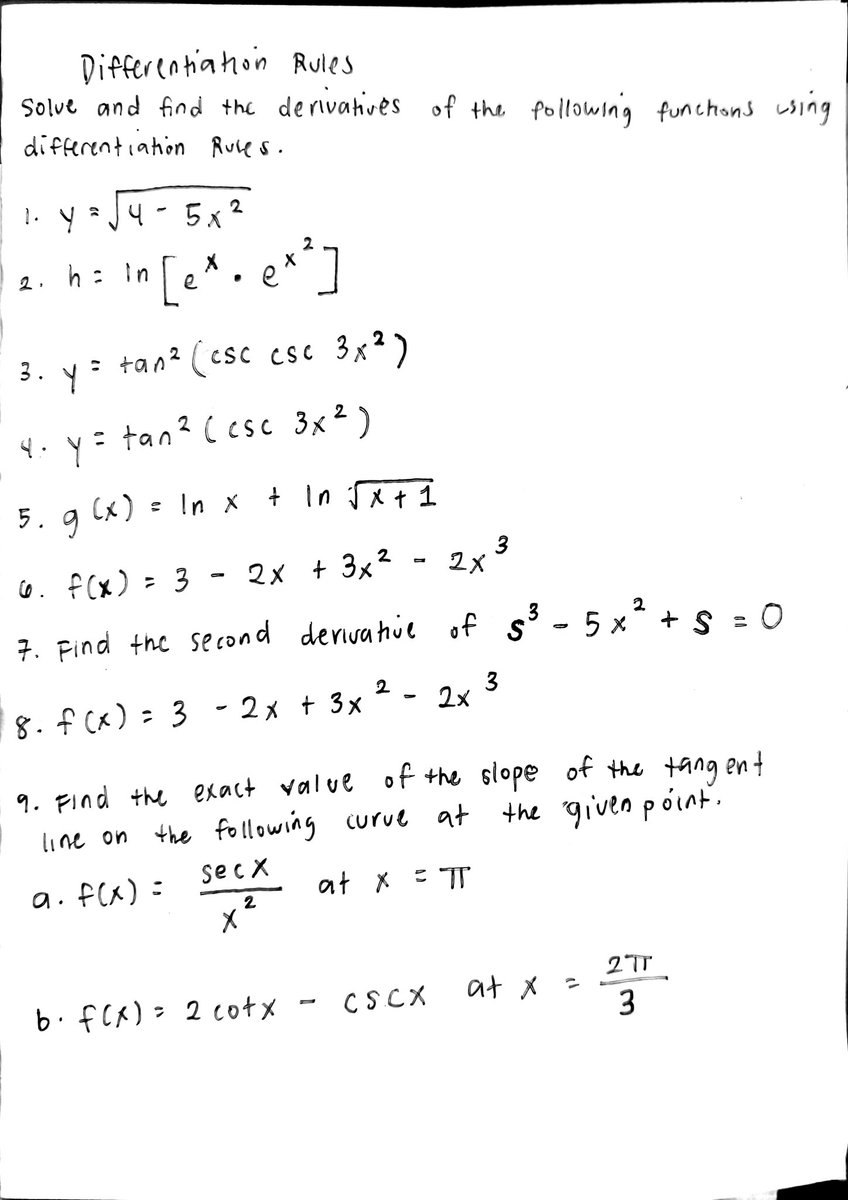 Differentiation Rules
Solve and find the derivatives of the following functions using
differentiation Rules.
1. y = √4 - 5x²
2. h = ln [eˣ · eˣ^²]
3. y = tan² (csc csc 3x²)
4. y = tan² (csc 3x²)
5. g(x) = ln x + ln √x + 1
6. f(x) = 3 - 2x + 3x² - 2x³
7. Find the second derivative of s³ - 5x² + s = 0
8. f(x) = 3 - 2x + 3x² - 2x³
9. Find the exact value of the slope of the tangent
line on the following curve at the given point.
a. f(x) = sec x / x² at x = π
b. f(x) = 2 cot x - csc x at x = 2π / 3